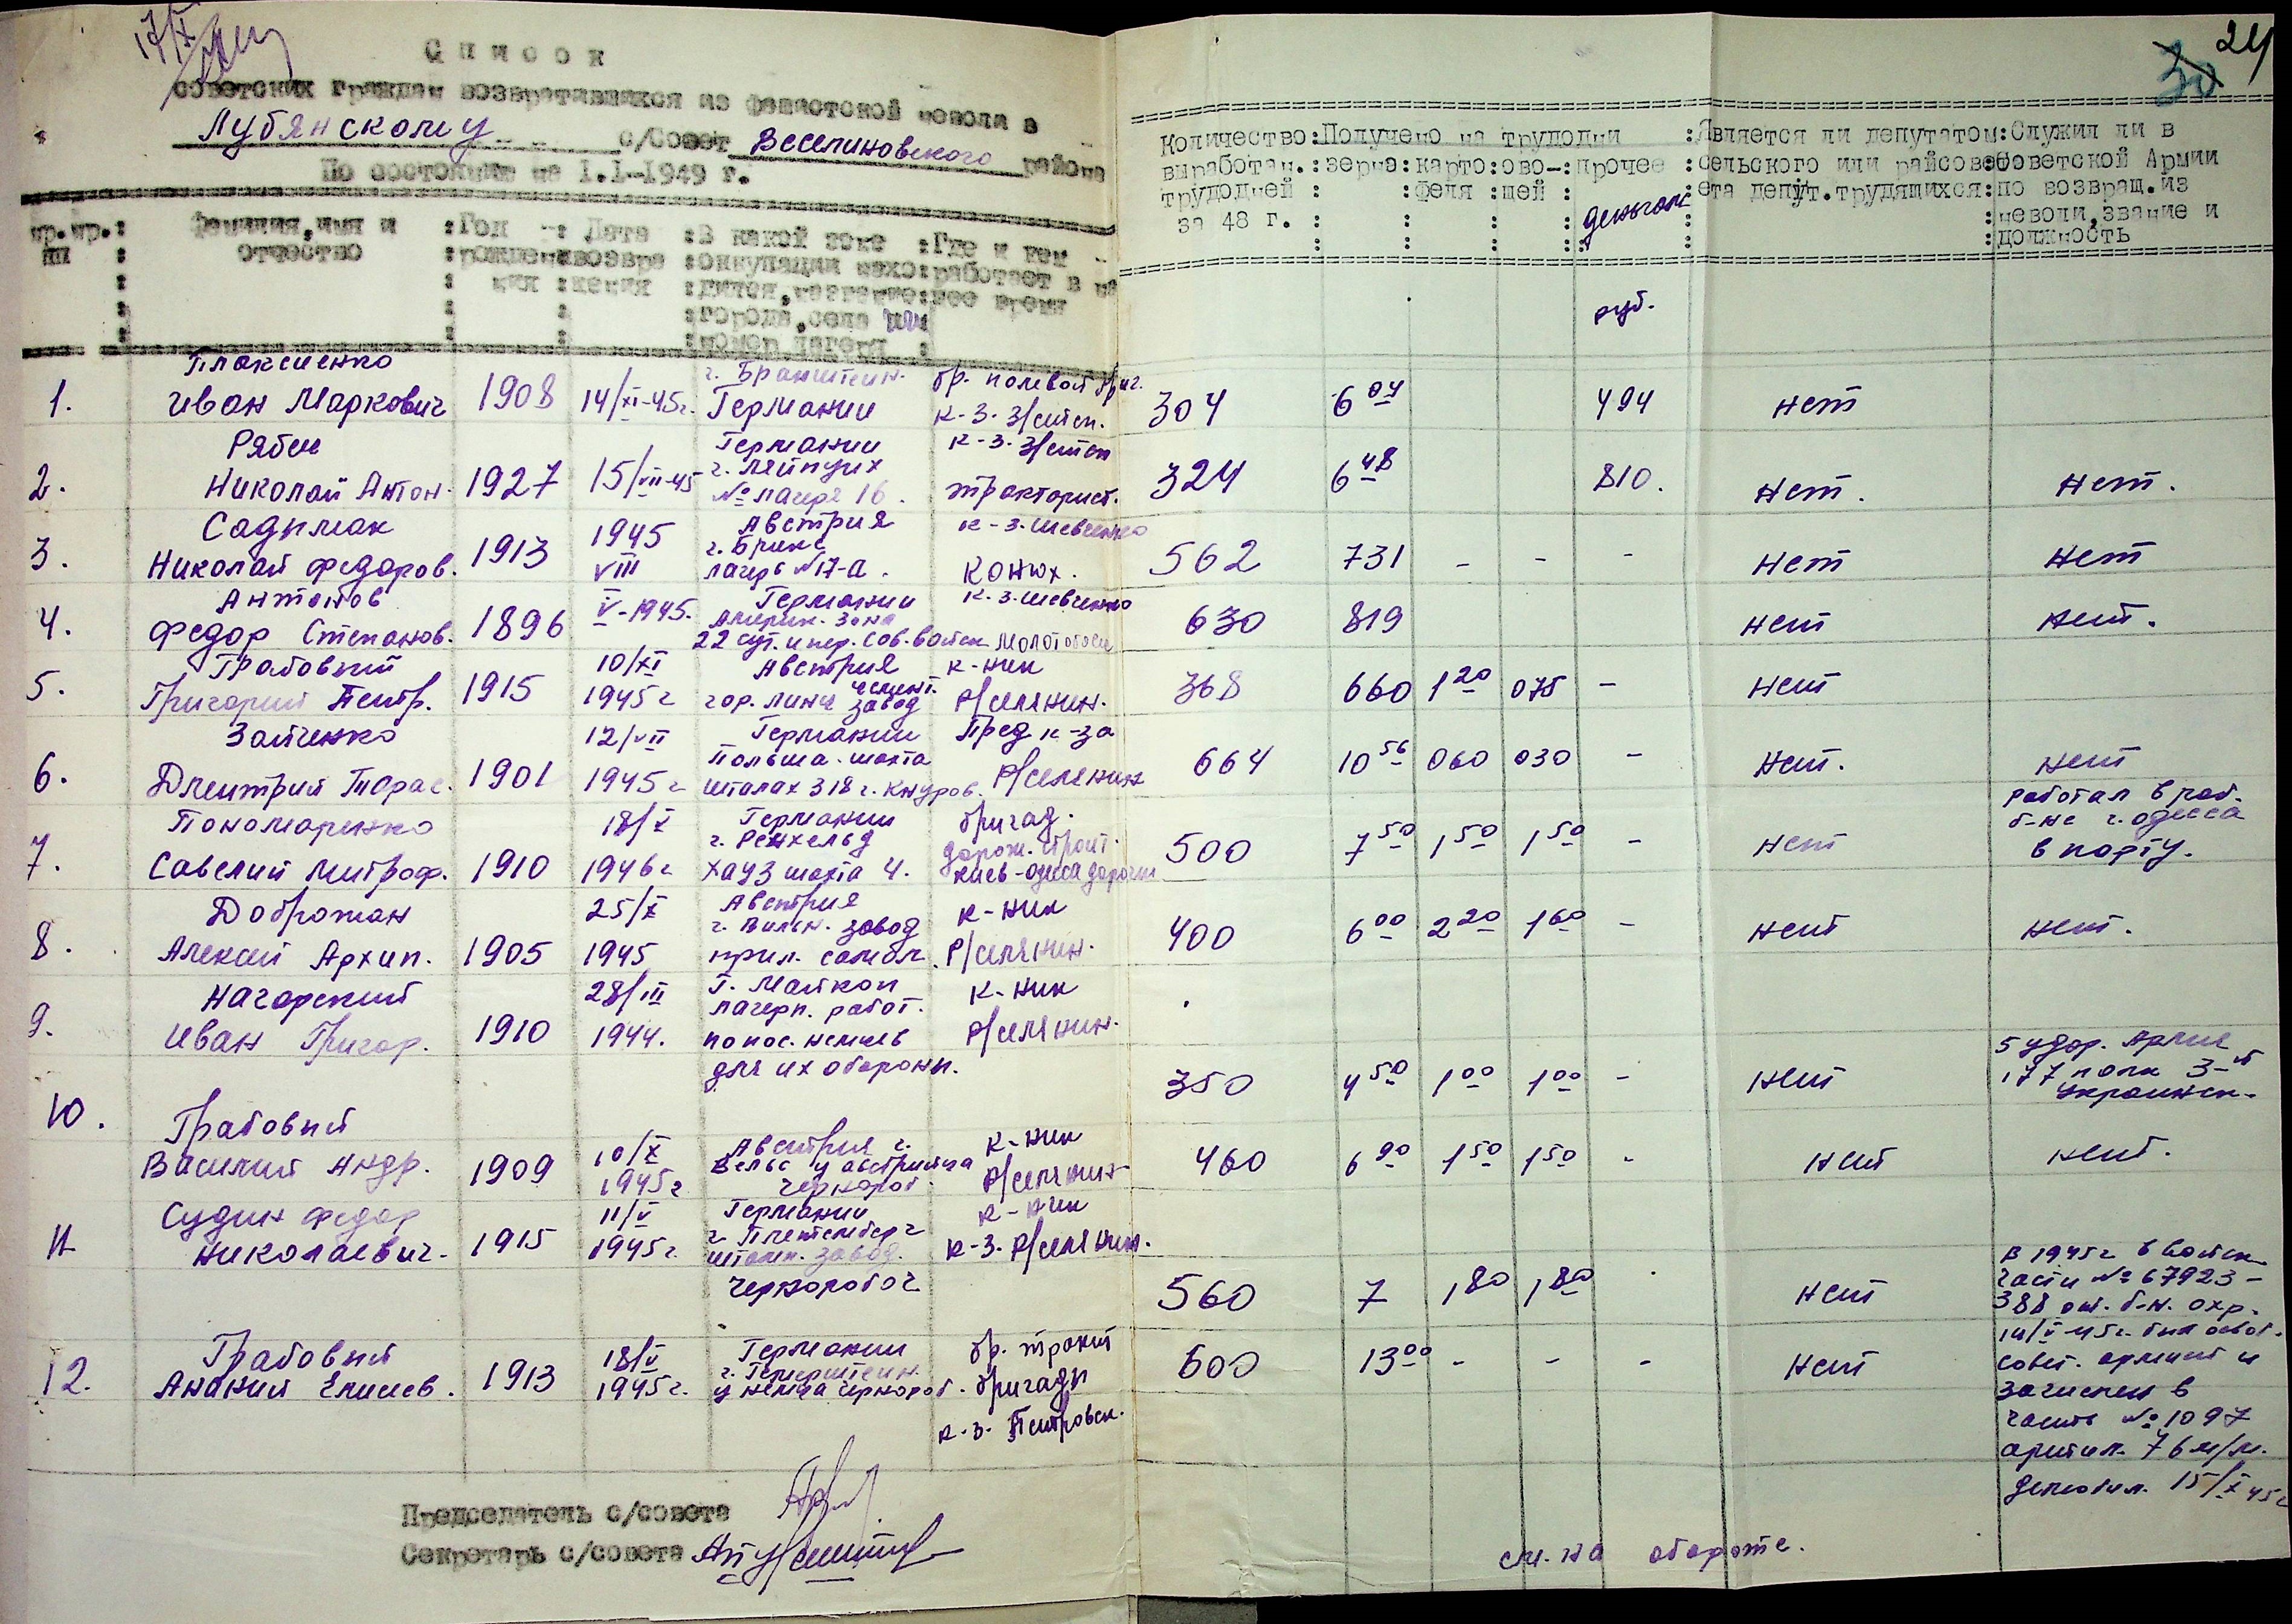 17/X
24
30
Список
советских граждан возвратившихся из фашистской неволи в
Лубянскому с/Совет Веселиновского района
По состоянию на 1.1-1949 г.
нр.нр.: Фамилия, имя и :Год -: Дата :В какой зоне :Где и кем
пп : отчество :рожден:возвра :оккупации нахо:работает в на
: : ния :щения :дился,название:нее время
: : : :города,села или
: : : :номер лагеря :
Количество:Получено на трудодни :Является ли депутатом:Служил ли в
выработан.:зерна:карто:ово-:прочее :сельского или райсове:Советской Армии
трудодней : :феля :щей : деньгами :ета депут.трудящихся:по возвращ.из
за 48 г. : : : : : :неволи,звание и
:должность
руб.
Плаксиенко г. Бранштейн. бр. полевой бриг.
1. Иван Маркович 1908 14/XI-45г. Германии к-з. З/степ. 304 6 04 494 нет
Рябен Германии к-з. З/степ
г. Ляйпциг
2. Николай Антон. 1927 15/VII-45 № лагеря 16. тракторист. 324 6 48 810. нет. нет.
Садымак 1945 Австрия к-з. Шевченко
г. Брикс
3. Николай Федоров. 1913 VIII лагерь №17-а. конюх. 562 731 - - - нет нет
Антонов Германии к-з. Шевченко
4. Федор Степанов. 1896 V-1945. Америк. зона 630 819 нет нет.
22 сут. и пер. Сов. войск молотобоец
Грабовый 10/XI Австрия к-ник
5. Григорий Петр. 1915 1945г гор. Линц цемент. завод Р/селянин. 368 660 1 20 075 - нет
Зайченко 12/VII Германии Пред к-за
Польша. шахта
6. Дмитрий Тарас. 1901 1945г шталах 318 г. Кнуров. Р/селянин 664 10 56 060 030 - нет. нет
Пономаренко 18/X Германии бригад. работал в раб.
г. Ренхельд дорож. строит. б-не г. Одесса
7. Савелий Митроф. 1910 1946г хауз шахта 4. Киев-Одесса дороги 500 7 50 1 50 1 50 - нет в порту.
Доброжан 25/X Австрия к-ник
г. Вильн. завод
8. Алексей Архип. 1905 1945 прил. самол. Р/селянин. 400 6 00 2 20 1 60 - нет нет.
Нагорский 28/III Г. Майкоп к-ник
лагерн. работ.
9. Иван Григор. 1910 1944. по пос. немцев Р/селянин.
для их обороны. 350 4 50 1 00 1 00 - нет 5 удар. Армия
177 полк 3-й
Украинск.
10. Грабовый
10/X Австрия г. к-ник
Василий Андр. 1909 1945г Вельс у австрийца Р/селянин 460 6 90 1 50 1 50 - нет нет.
чернораб.
Судин Федор 11/V Германии к-ник
11 Николаевич. 1915 1945г. г. Плетемберг к-з. Р/селянин.
штамп. завод.
чернорабоч 560 7 1 80 1 80 - нет
В 1945г в войск.
части №67923-
388 от. б-н. охр.
Грабовый 18/V Германии бр. тракт
12. Ананий Елисеев. 1913 1945г. у немца чернораб. бригады 600 13 00 - - - нет
к-з. Петровск.
14/V 45г. был освоб.
совет. армией и
зачислен в
часть №1097
артил. 76 м/м.
демобил. 15/X 45г
Председатель с/совета
Секретарь с/совета
см. на обороте.